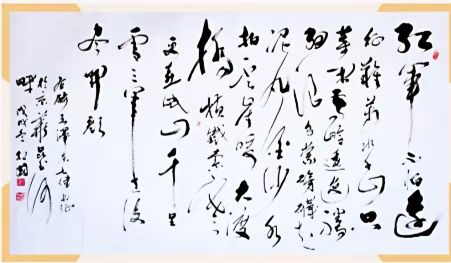 红军不怕远
征难万水千山只
等闲五岭逶迤腾
细浪乌蒙磅礴走
泥丸金沙水
拍云崖暖大渡
桥横铁索寒
更喜岷山千里
雪三军过后
尽开颜
右录毛泽东七律长征
於京华昆玉河
畔戊戌冬